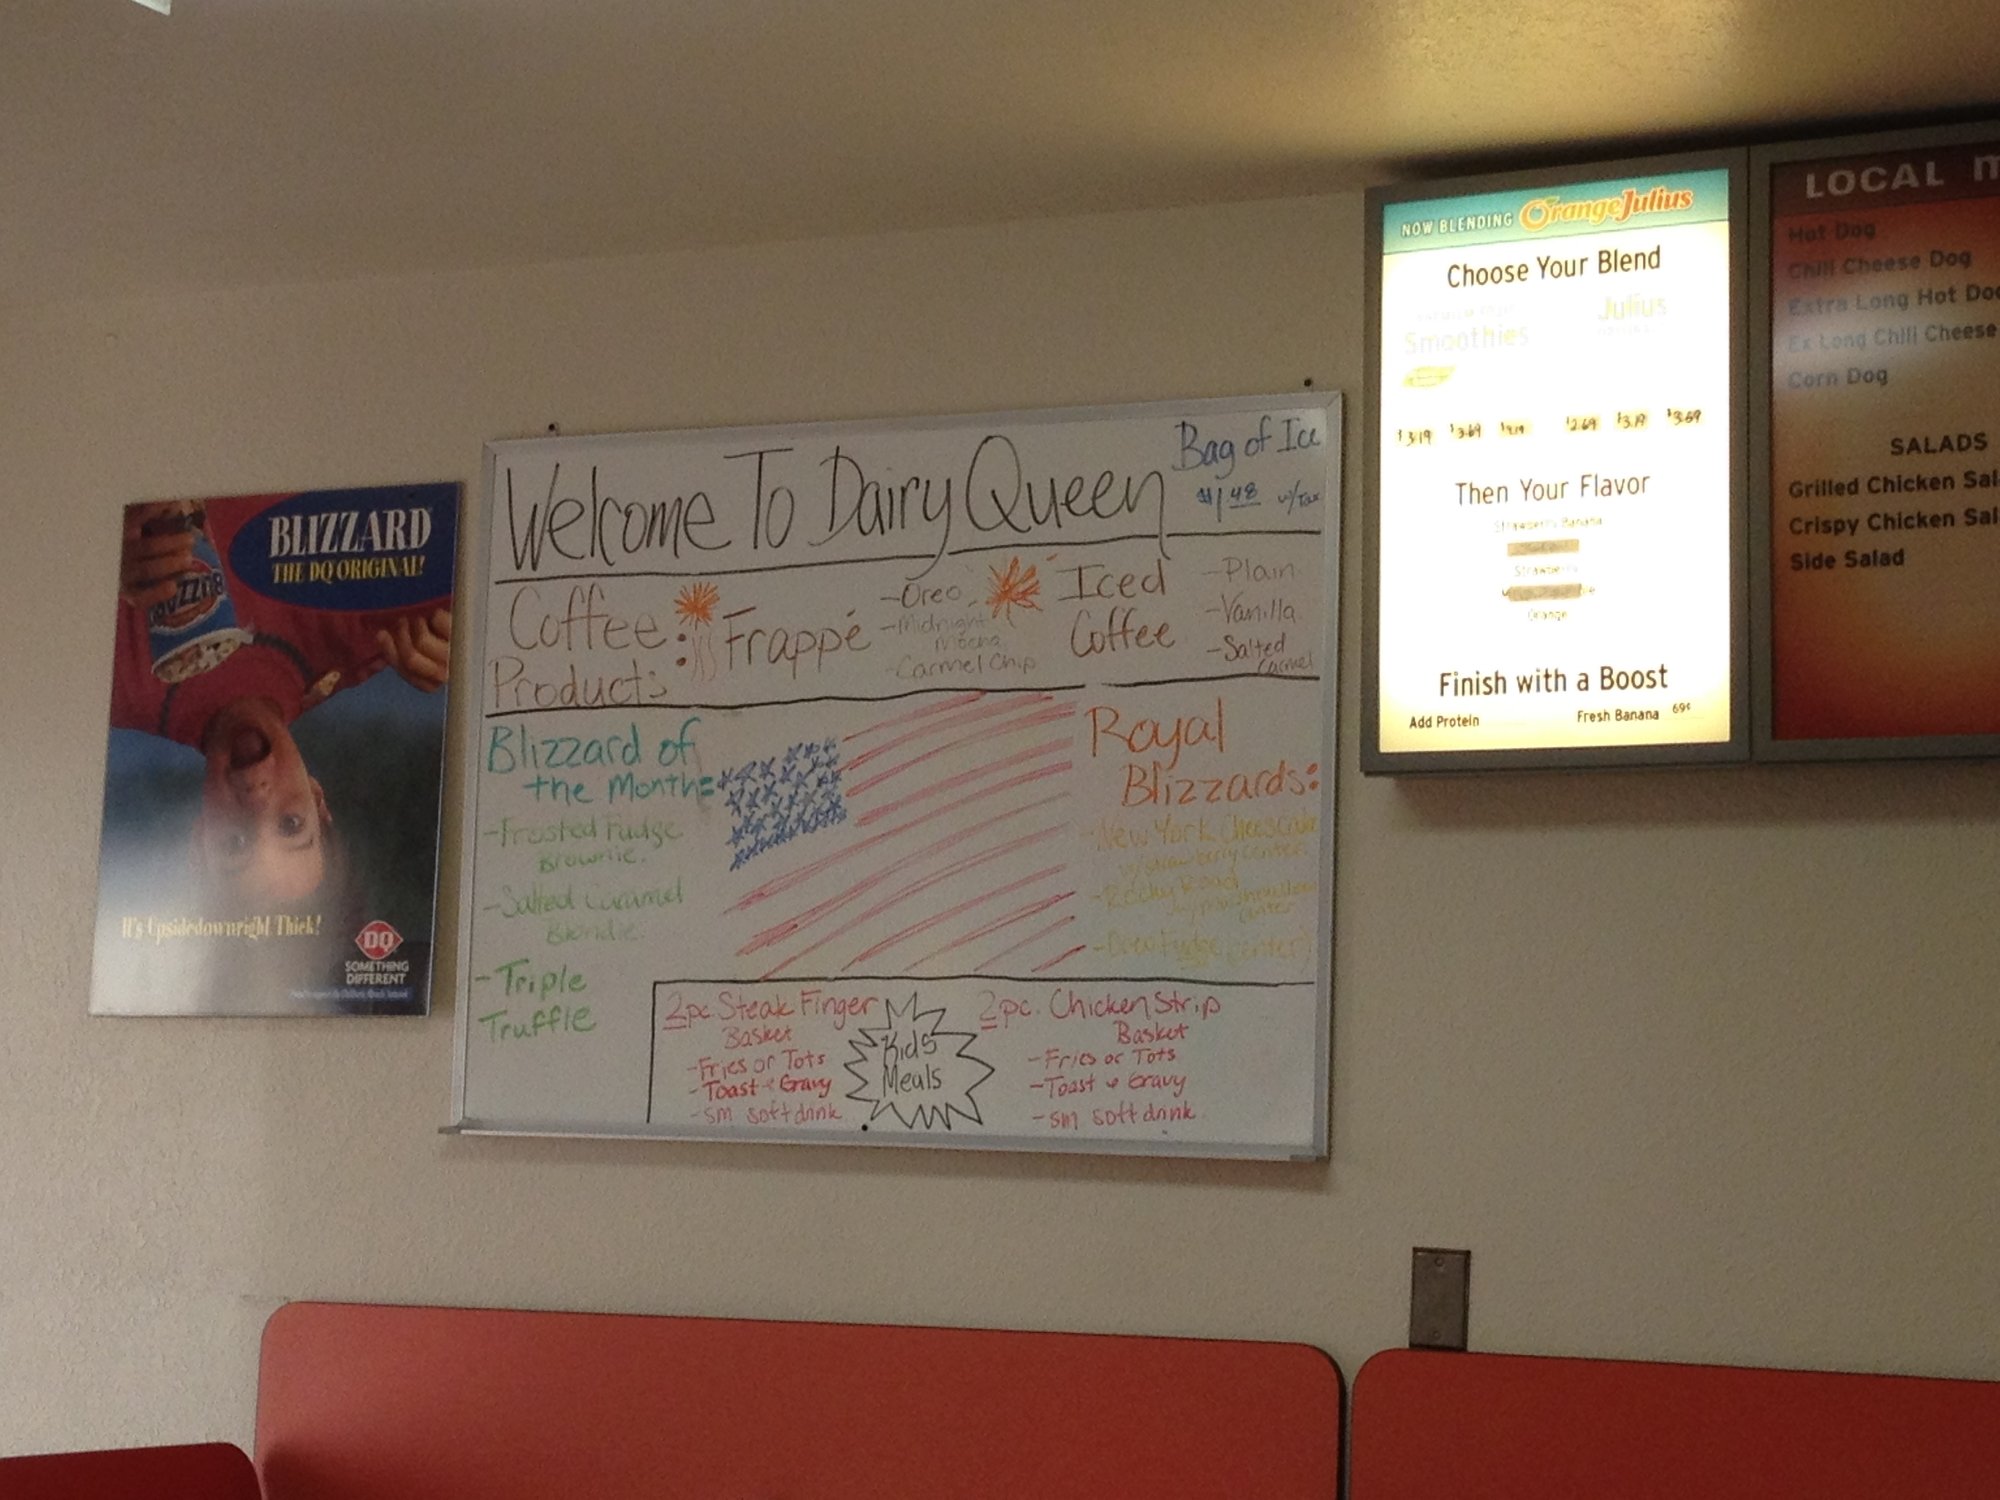 BLIZZARD
THE DQ ORIGINAL!
BLIZZARD
It's Upsidedownright Thick!
DQ
SOMETHING
DIFFERENT
Welcome To Dairy Queen
Bag of Ice
$1.48 w/Tax
Coffee
Products:
Frappé
-Oreo
-Midnight
Mocha
-Carmel Chip
Iced
Coffee
-Plain
-Vanilla
-Salted
Carmel
Blizzard of
the Month:
-Frosted Fudge
Brownie
-Salted Caramel
Blondie
-Triple
Truffle
Royal
Blizzards:
-New York Cheesecake
w/strawberry center
-Rocky Road
center
-Oreo Fudge center)
2pc. Steak Finger
Basket
-Fries or Tots
-Toast & Gravy
-sm soft drink
Kids
Meals
2pc. Chicken Strip
Basket
-Fries or Tots
-Toast & Gravy
-sm soft drink
NOW BLENDING OrangeJulius
Choose Your Blend
Smoothies
Julius
$3.19 $3.69 $2.69 $3.19 $3.69
Then Your Flavor
Strawberry Banana
Strawberry
Orange
Finish with a Boost
Add Protein
Fresh Banana 69¢
LOCAL
Hot Dog
Chili Cheese Dog
Extra Long Hot Do
Ex Long Chili Cheese
Corn Dog
SALADS
Grilled Chicken Sal
Crispy Chicken Sal
Side Salad